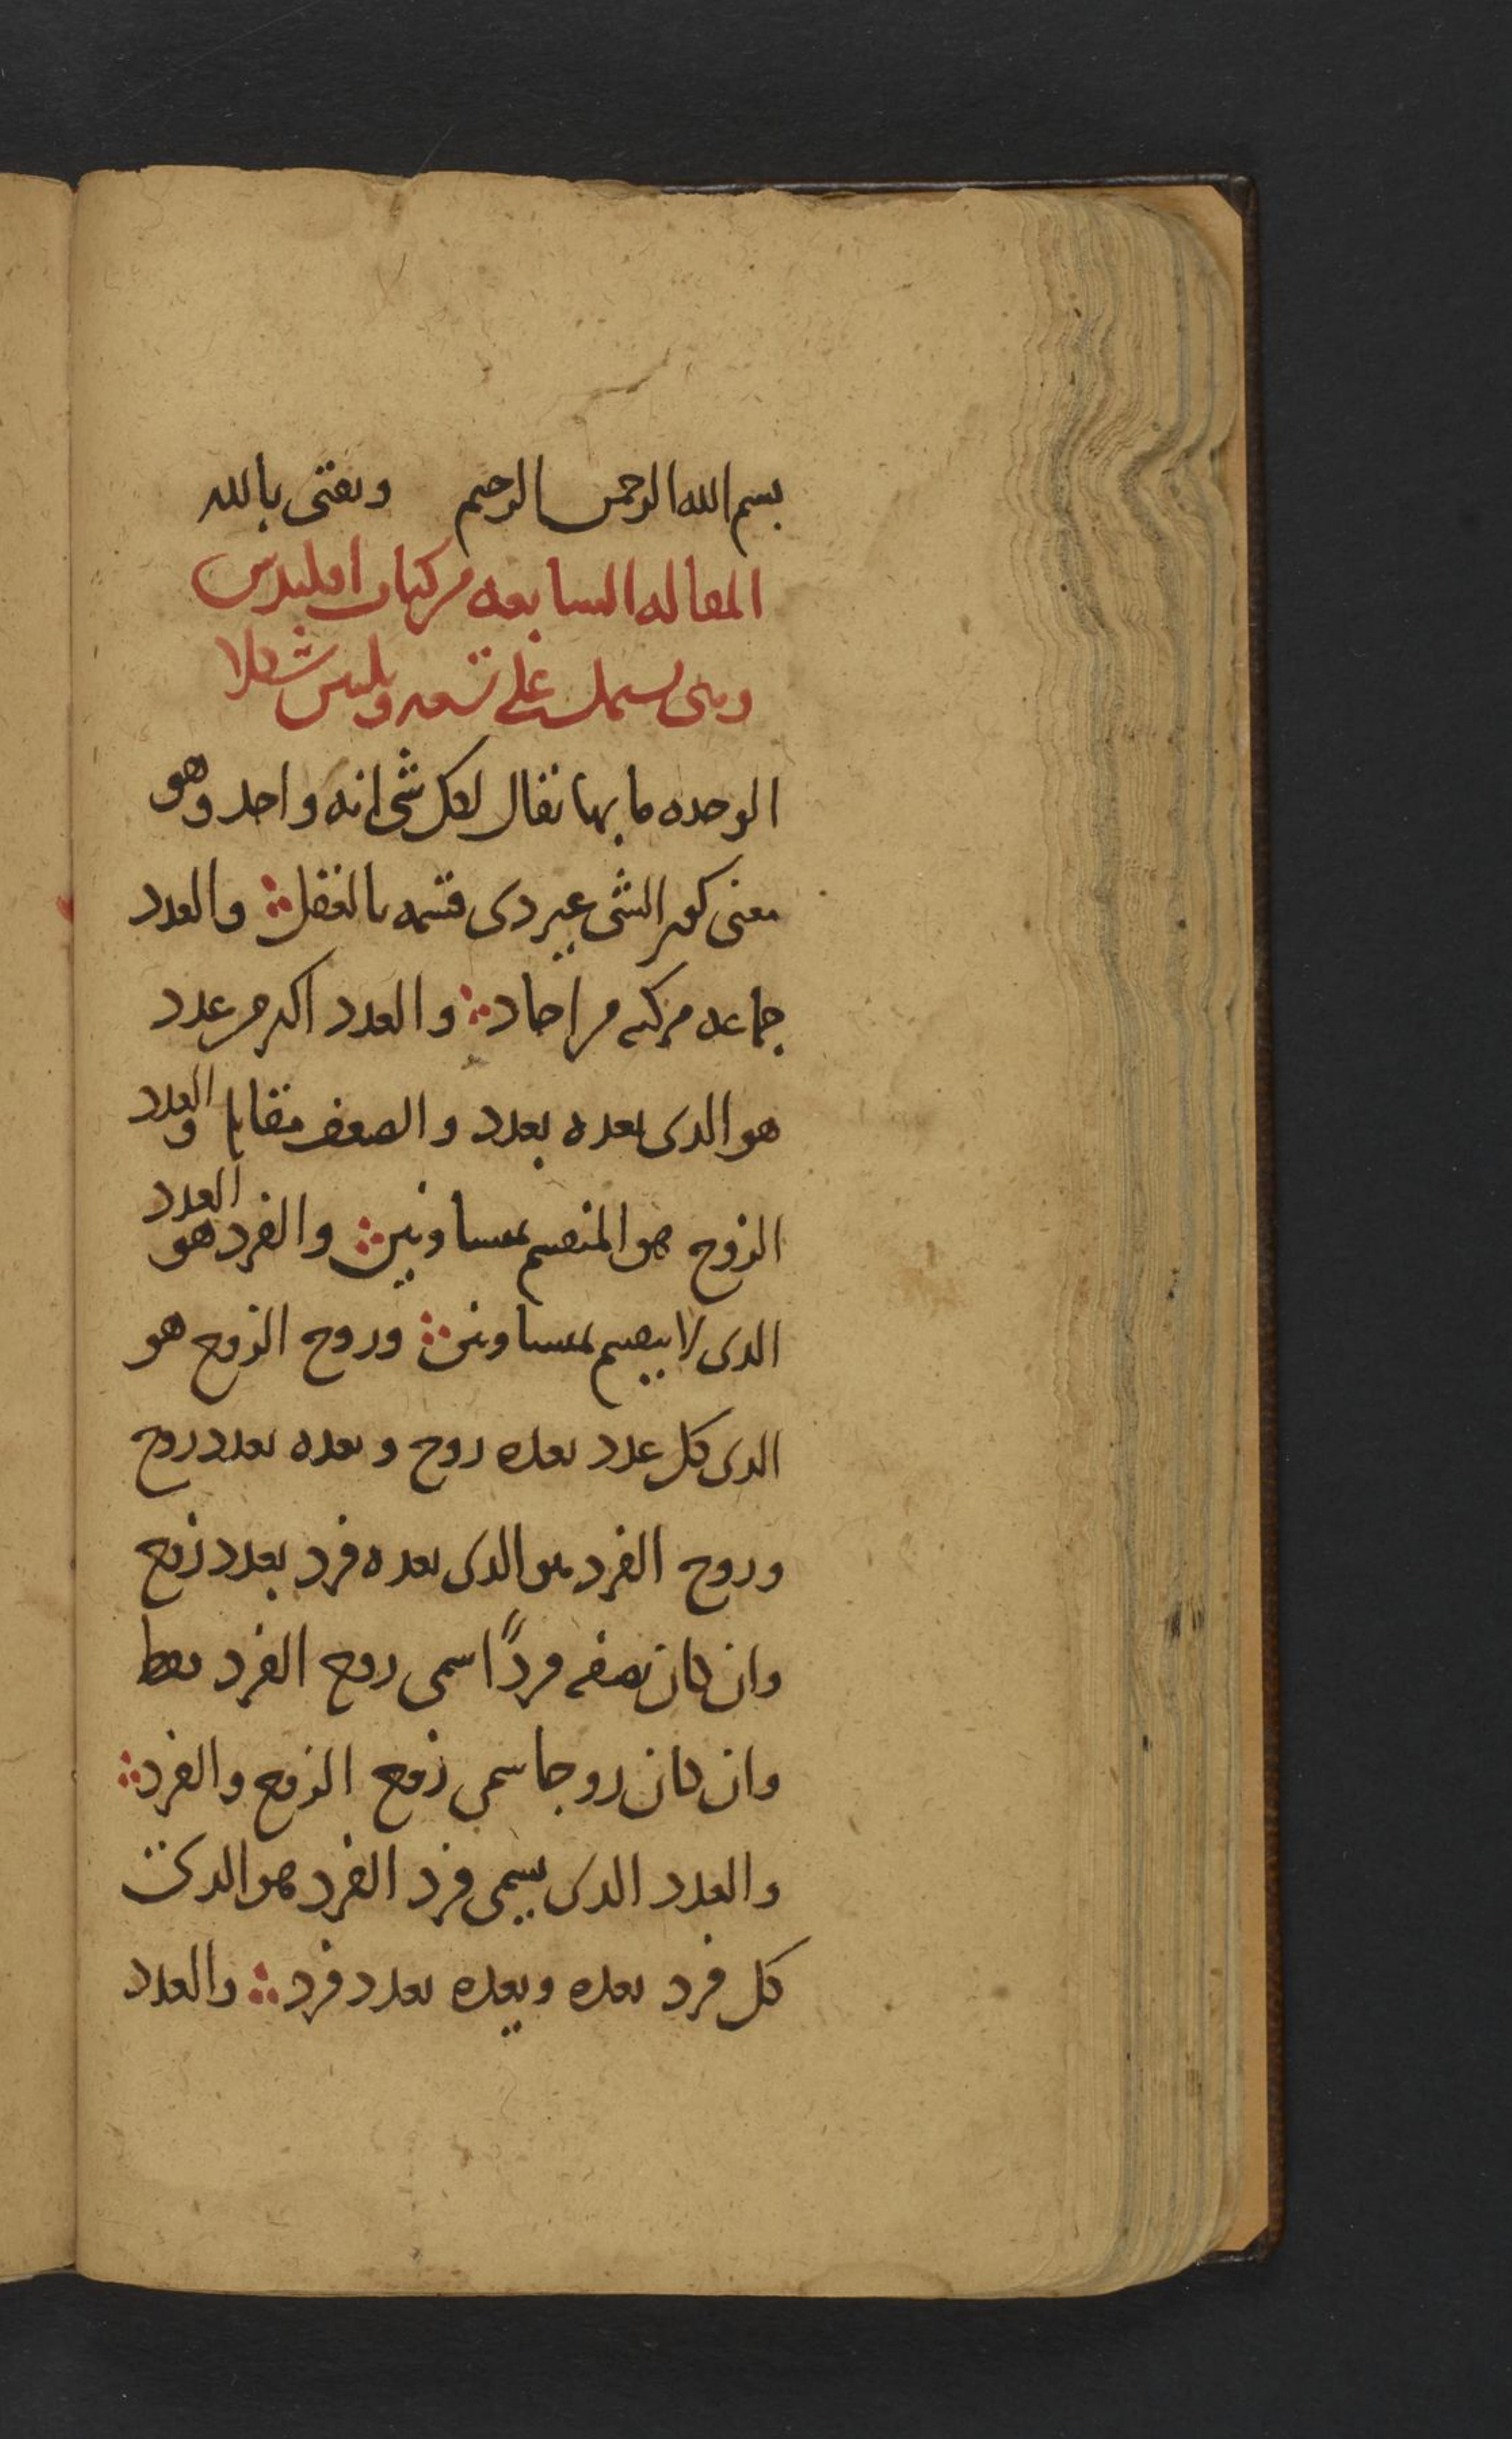 بسم الله الرحمن الرحيم وثقتى بالله
المقاله السابعه من كتاب اقليدس
وهى تشتمل على تسعه وثلثين شكلا
الوحده ما بها يقال لكل شى انه واحد وهو
معنى كون الشى غير ذى قسمه بالفعل والعدد
جماعه مركبه من احاد والعدد اكثر من عدد
هو الذى يعده بعدد والضعف والعدد
الزوج هو المنقسم بمتساويين والفرد هو العدد
الذى لا ينقسم بمتساويين وزوج الزوج هو
الذى كل عدد يعده زوج ويعده بعدد زوج
وزوج الفرد هو الذى يعده فرد بعدد زوج
وان كان نصفه فردًا سمى زوج الفرد فقط
وان كان زوجا سمى زوج الزوج والفرد
والعدد الذى يسمى فرد الفرد هو الذى
كل فرد يعده ويعده بعدد فرد والعدد